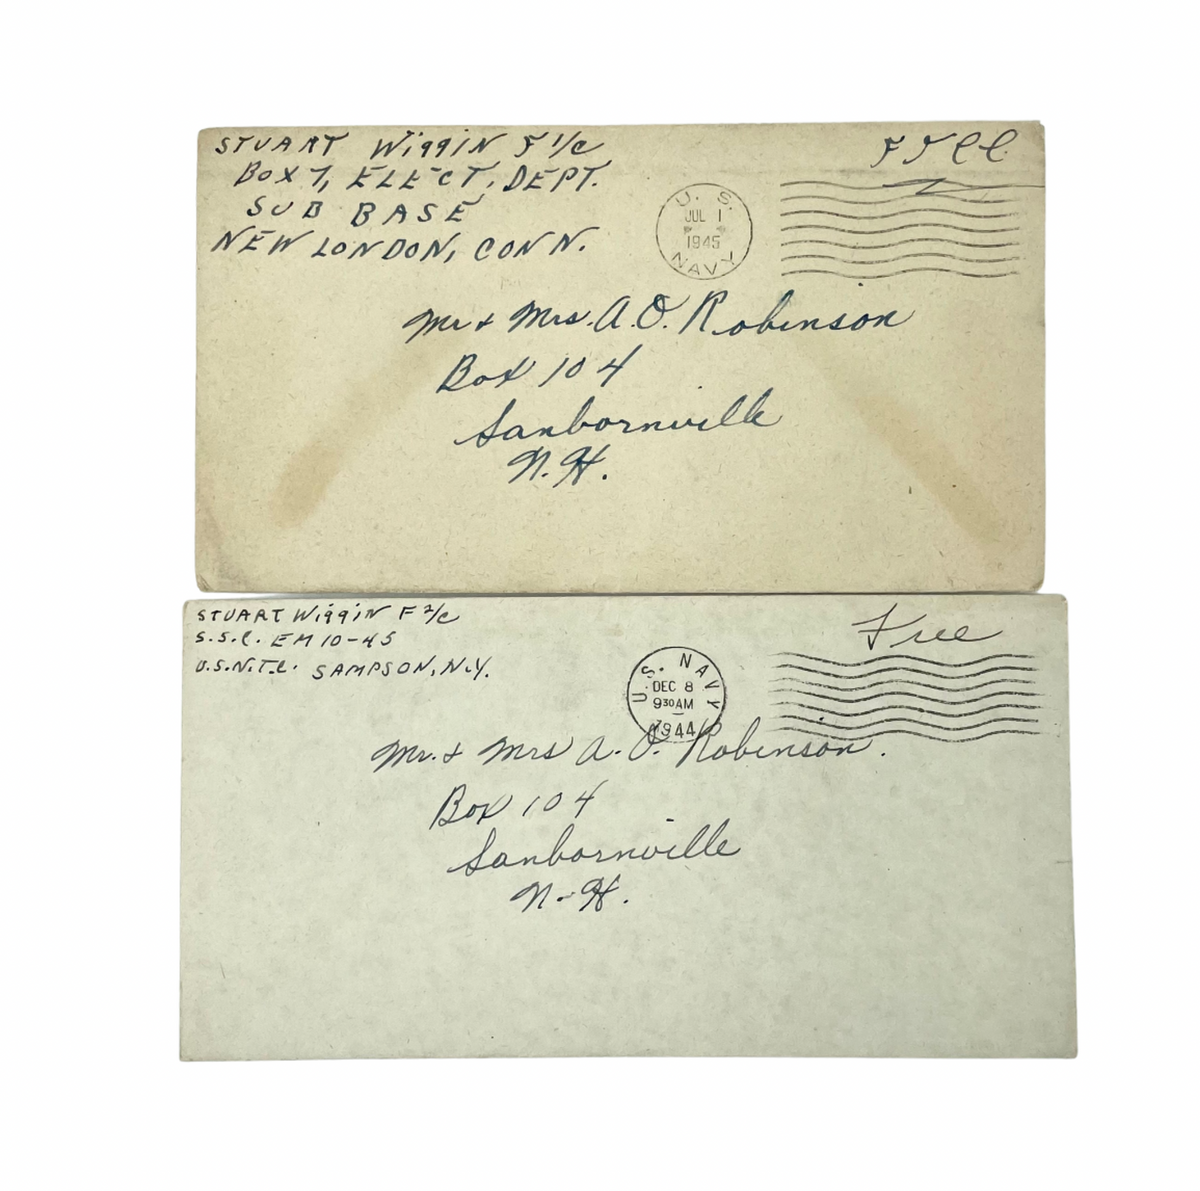 STUART WiggiN F 1/c
Free
BOX 7, ELECT. DEPT.
SUB BASE
NEW LONDON, CONN.
U. S.
JUL 1
1945
NAVY
Mr & Mrs. A. O. Robinson
Box 104
Sanbornville
N. H.
STUART WiggiN F 2/c
Free
S.S.C. EM 10-45
U.S.N.T.C. SAMPSON, N.Y.
U.S. NAVY
DEC 8
930AM
1944
Mr. & Mrs A. O. Robinson.
Box 104
Sanbornville
N-H.